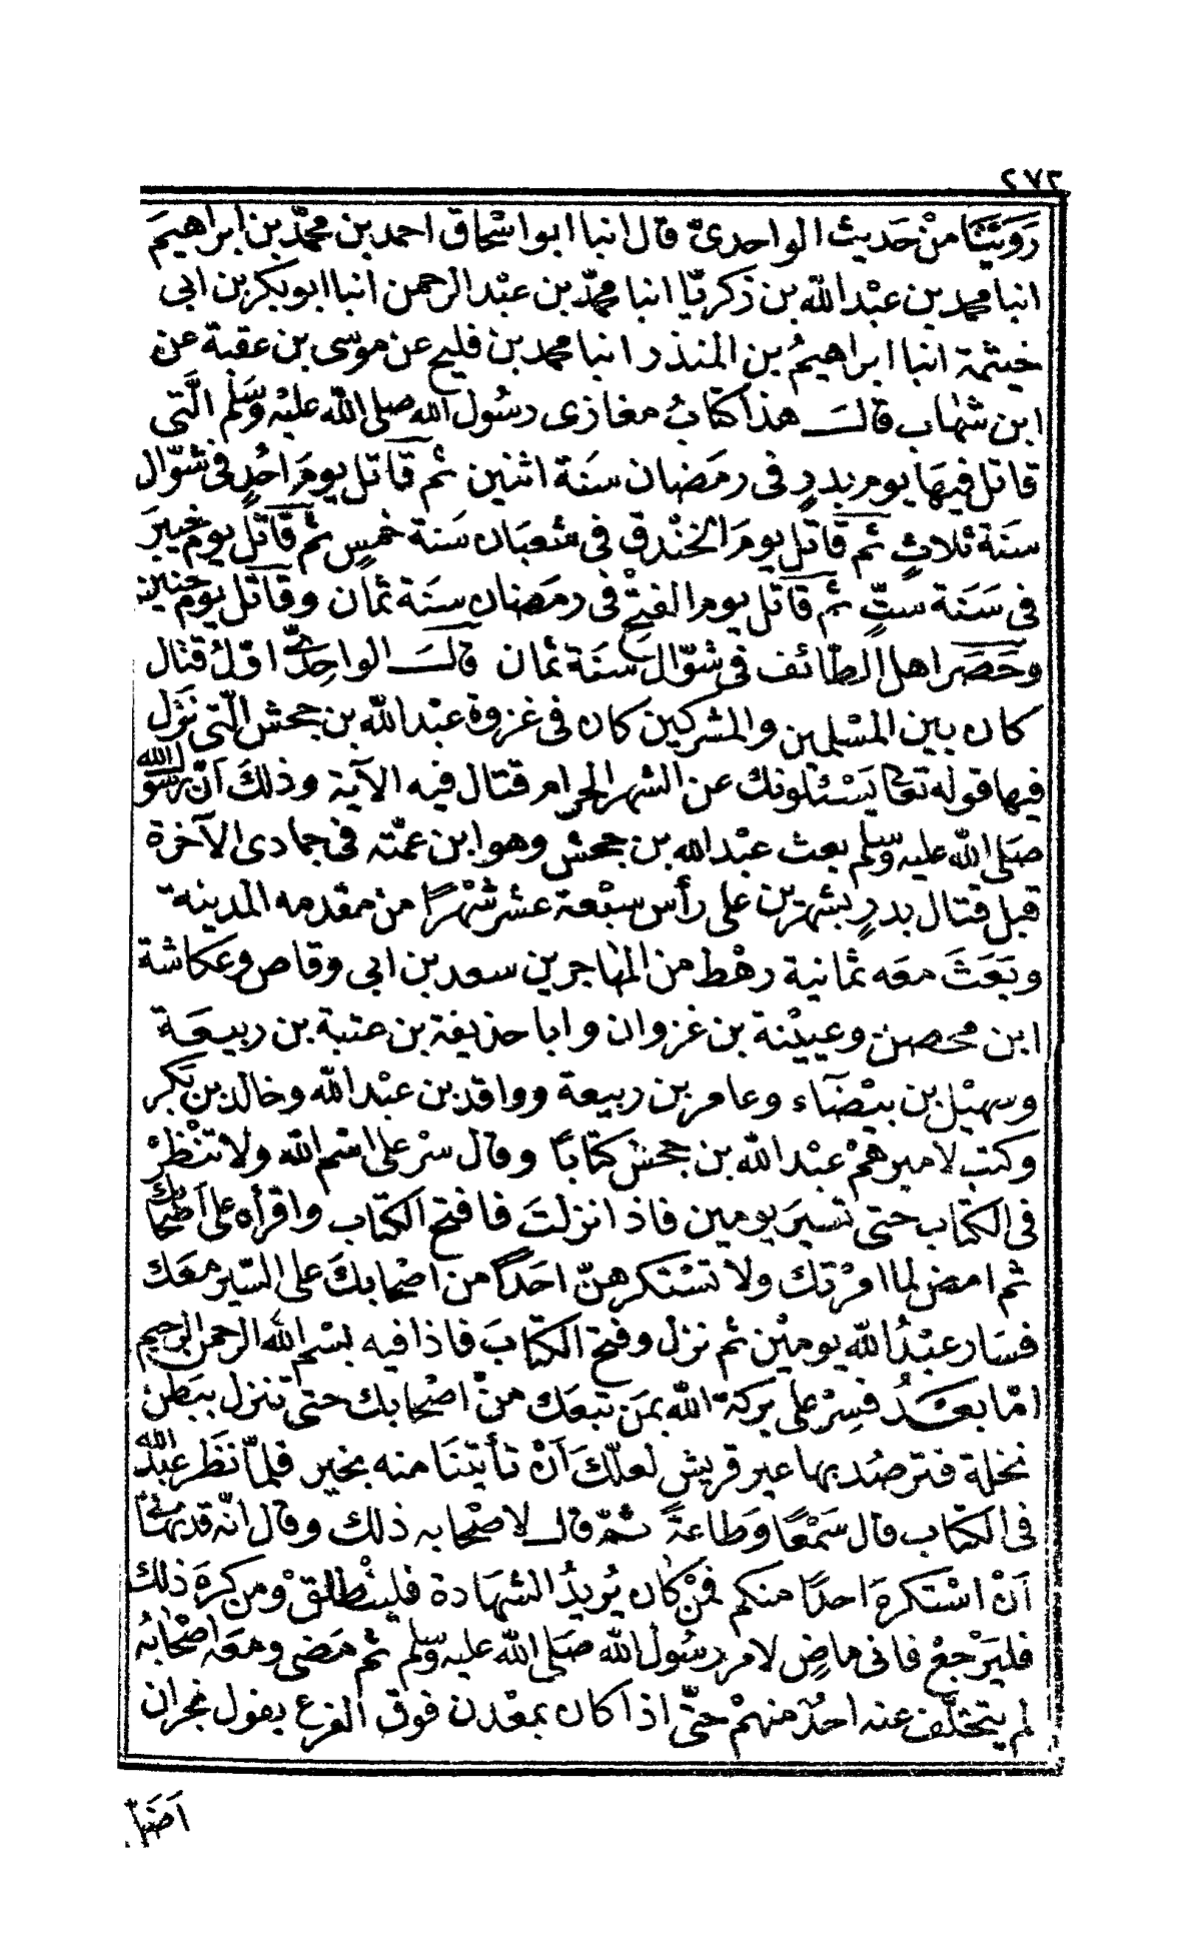 ٢٧٢
رَوَيْتُنَا مِنْ حَديث الواحدىّ قال انبا ابو اسْحاق احمد بن محمّد بن ابراهيمَ
انبا محمد بن عبْد الله بن زكريّا انبا محمّد بن عبْد الرحمن انبا ابو بكر بن ابى
خيثمة انبا ابراهيمُ بن المنذر انبا محمد بن فليح عن موسى بن عقبة عن
ابن شهاب قالـــ هذا كتابُ مغازى رسُول الله صلى الله عليْه وَسَلّم الّتى
قاتل فيهَا يوم بدرٍ فى رمَضان سنَة اثنين ثم قاتل يومَ احُدٍ فى شوّال
سنَة ثلاثٍ ثم قاتل يومَ الخنْدق فى شعبَان سَنة خمسٍ ثم قاتل يوم خيبرَ
فى سَنَة ستٍّ ثم قاتل يوم الفتْح فى رمَضان سنَة ثمان وقاتل يوم حنين
وحَصَر اهل الطائف فى شوّال سنَة ثمان قالـــ الواحدىّ اوّلُ قتال
كان بين المسْلمين والمشركين كان فى غزوة عبْد الله بن جحش الّتى نزَل
فيها قوله تعا يَسْئلونك عن الشهر الحرام قتال فيه الآية وذلكَ اَنّ رسُول الله
صَلى الله عليه وسلم بعث عبْد الله بن جحش وهو ابن عمّته فى جمادى الآخرة
قبل قتال بدرٍ بشهرين على رأس سبْعة عشر شهْرًا من مقدمه المدينة
وبَعَثَ معَه ثمانية رهْط من المهاجرين سعد بن ابى وقاص وعكاشة
ابن محصن وعيينْة بن غزوان وابا حذيفة بن عتبة بن ربيعَة
وسهيْل بن بيْضَآء وعامر بن ربيعة وواقد بن عبْد الله وخالد بن بَكر
وكتب لاميرهمْ عبْد الله بن جحش كتابًا وقال سرْ على اسْم الله ولا تنْظرْ
فى الكتاب حتى تسيرَ يومين فاذا نزلتَ فافتح الكتاب واقرأه على اَصْحابكَ
ثم امض لما امرْتك ولا تسْتكرهنّ احَدًا من اصْحابكَ على السّير معَك
فسَار عبْدُ الله يوميْن ثم نزل وفتح الكتابَ فاذا فيه بسْم الله الرحمن الرحيم
امّا بَعْـــدُ فسِرْ على بركة الله بمَن تبعَك منْ اصْحابك حتى تنزل ببَطن
نخلة فترصّد بها عير قريش لعلّكَ اَنْ تأتيَنَا منه بخير فلمّا نظَر عبْد الله
فى الكتاب قال سَمْعًا وَطاعةً ثمّ قالـــ لاصْحابه ذلك وقال انّه قد نهَانى
اَنْ اسْتكرهَ احدًا منكم فمَنْ كان يُريدُ الشهَادة فلينْطلقْ ومن كرهَ ذلك
فليَرْجعْ فانى ماضٍ لامر رسُول الله صَلى الله عليه وسلم ثم مَضى ومعَه اصْحابُه
لم يتخلّف عنه احدٌ منهمْ حتّى اذا كان بمعْدن فوق الفرع يقول نجران
اَضَلّ